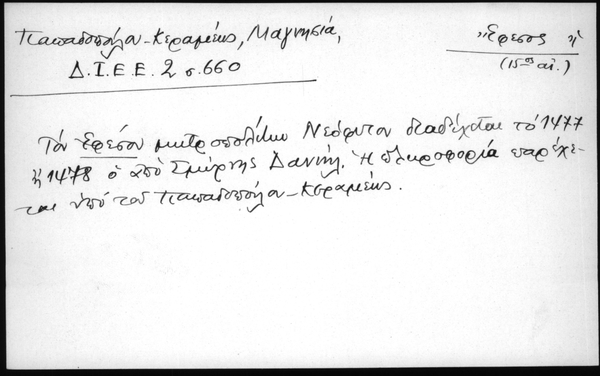 Παπαδοπούλου-Κεραμέως, Μαγνησιά,
Δ.Ι.Ε.Ε. 2 σ. 660
Ἔφεσος
(15ος αἰ.)
Τόν Ἐφέσου μητροπολίτην Νεόφυτον διαδέχεται τό 1477
ἤ 1478 ὁ ἀπό Σμύρνης Δανιήλ. Ἡ πληροφορία παρέχε-
ται ὑπό τοῦ Παπαδοπούλου-Κεραμέως.